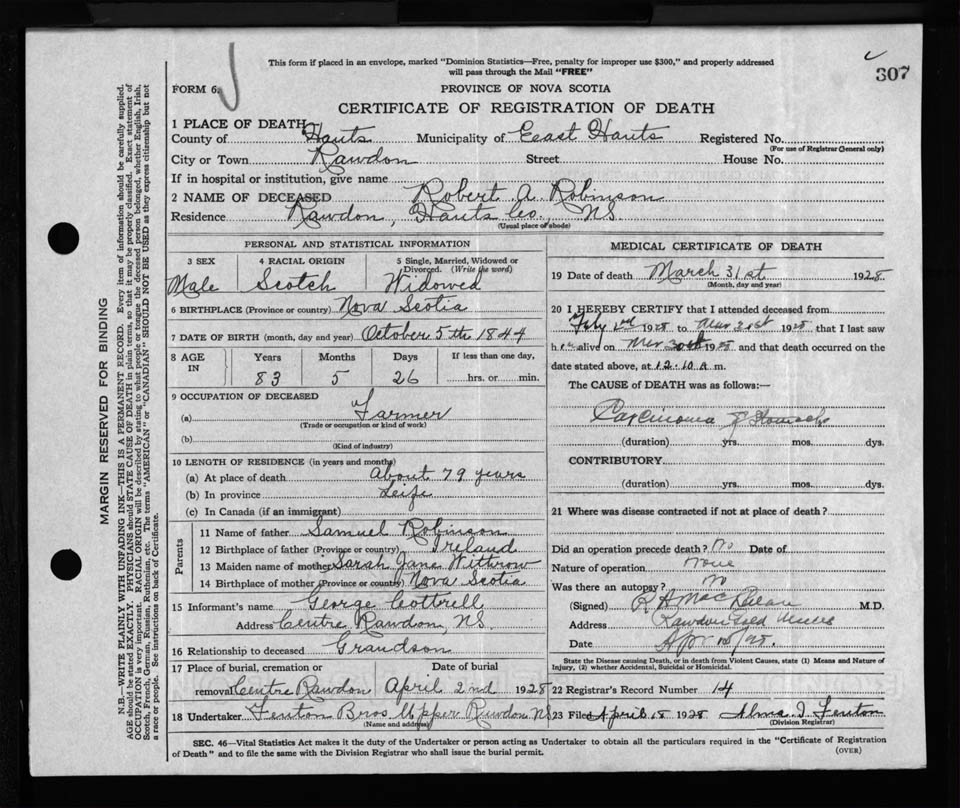 This form if placed in an envelope, marked "Dominion Statistics—Free, penalty for improper use $300," and properly addressed
will pass through the Mail "FREE"
307
FORM 6.
PROVINCE OF NOVA SCOTIA
CERTIFICATE OF REGISTRATION OF DEATH
1 PLACE OF DEATH
County of Hants Municipality of East Hants Registered No.
(For use of Registrar General only)
City or Town Rawdon Street House No.
If in hospital or institution, give name
2 NAME OF DECEASED Robert A. Robinson
Residence Rawdon, Hants Co., NS.
(Usual place of abode)
PERSONAL AND STATISTICAL INFORMATION
3 SEX 4 RACIAL ORIGIN 5 Single, Married, Widowed or Divorced. (Write the word)
Male Scotch Widowed
6 BIRTHPLACE (Province or country) Nova Scotia
7 DATE OF BIRTH (month, day and year) October 5th 1844
8 AGE IN Years Months Days If less than one day,
83 5 26 hrs. or min.
9 OCCUPATION OF DECEASED
(a) Farmer
(Trade or occupation or kind of work)
(b)
(Kind of industry)
10 LENGTH OF RESIDENCE (in years and months)
(a) At place of death About 79 years
(b) In province Life
(c) In Canada (if an immigrant)
Parents
11 Name of father Samuel Robinson
12 Birthplace of father (Province or country) Ireland
13 Maiden name of mother Sarah Jane Withrow
14 Birthplace of mother (Province or country) Nova Scotia
15 Informant's name George Cottrell
Address Centre Rawdon, NS.
16 Relationship to deceased Grandson
17 Place of burial, cremation or Date of burial
removal Centre Rawdon April 2nd 1928
18 Undertaker Fenton Bros Upper Rawdon NS
(Name and address)
MEDICAL CERTIFICATE OF DEATH
19 Date of death March 31st 1928
(Month, day and year)
20 I HEREBY CERTIFY that I attended deceased from
1928 to 1928, that I last saw
h alive on 1928 and that death occurred on the
date stated above, at 12.10 A m.
The CAUSE of DEATH was as follows:—
Carcinoma of Stomach
(duration) yrs. mos. dys.
CONTRIBUTORY
(duration) yrs. mos. dys.
21 Where was disease contracted if not at place of death?
Did an operation precede death? No Date of
Nature of operation None
Was there an autopsy? No
(Signed) M.D.
Address Rawdon Gold Mines
Date
State the Disease causing Death, or in death from Violent Causes, state (1) Means and Nature of
Injury, (2) whether Accidental, Suicidal or Homicidal.
22 Registrar's Record Number 14
23 Filed April 18 1928 Alma I. Fenton
(Division Registrar)
SEC. 46—Vital Statistics Act makes it the duty of the Undertaker or person acting as Undertaker to obtain all the particulars required in the "Certificate of Registration
of Death" and to file the same with the Division Registrar who shall issue the burial permit.
(OVER)
MARGIN RESERVED FOR BINDING
N.B.—WRITE PLAINLY WITH UNFADING INK—THIS IS A PERMANENT RECORD. Every item of information should be carefully supplied.
AGE should be stated EXACTLY. PHYSICIANS should STATE CAUSE OF DEATH in plain terms, so that it may be properly classified. Exact statement of
OCCUPATION is very important. RACIAL ORIGIN will be described by stating to what people or tongue the deceased person belonged, whether English, Irish,
Scotch, French, German, Russian, Ruthenian, etc. The terms "AMERICAN" or "CANADIAN" SHOULD NOT BE USED as they express citizenship but not
a race or people. See instructions on back of Certificate.